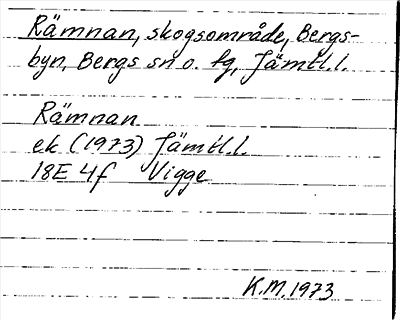 Rämnan, skogsområde, Bergs-
byn, Bergs sn o. tg, Jämtl. l.
Rämnan
ek (1973) Jämtl. l.
18E 4f Vigge
K.M. 1973